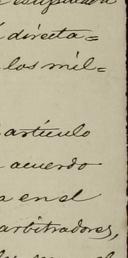 estipulada
directa=
los mil-
artículo
acuerdo
en el
arbitradores,